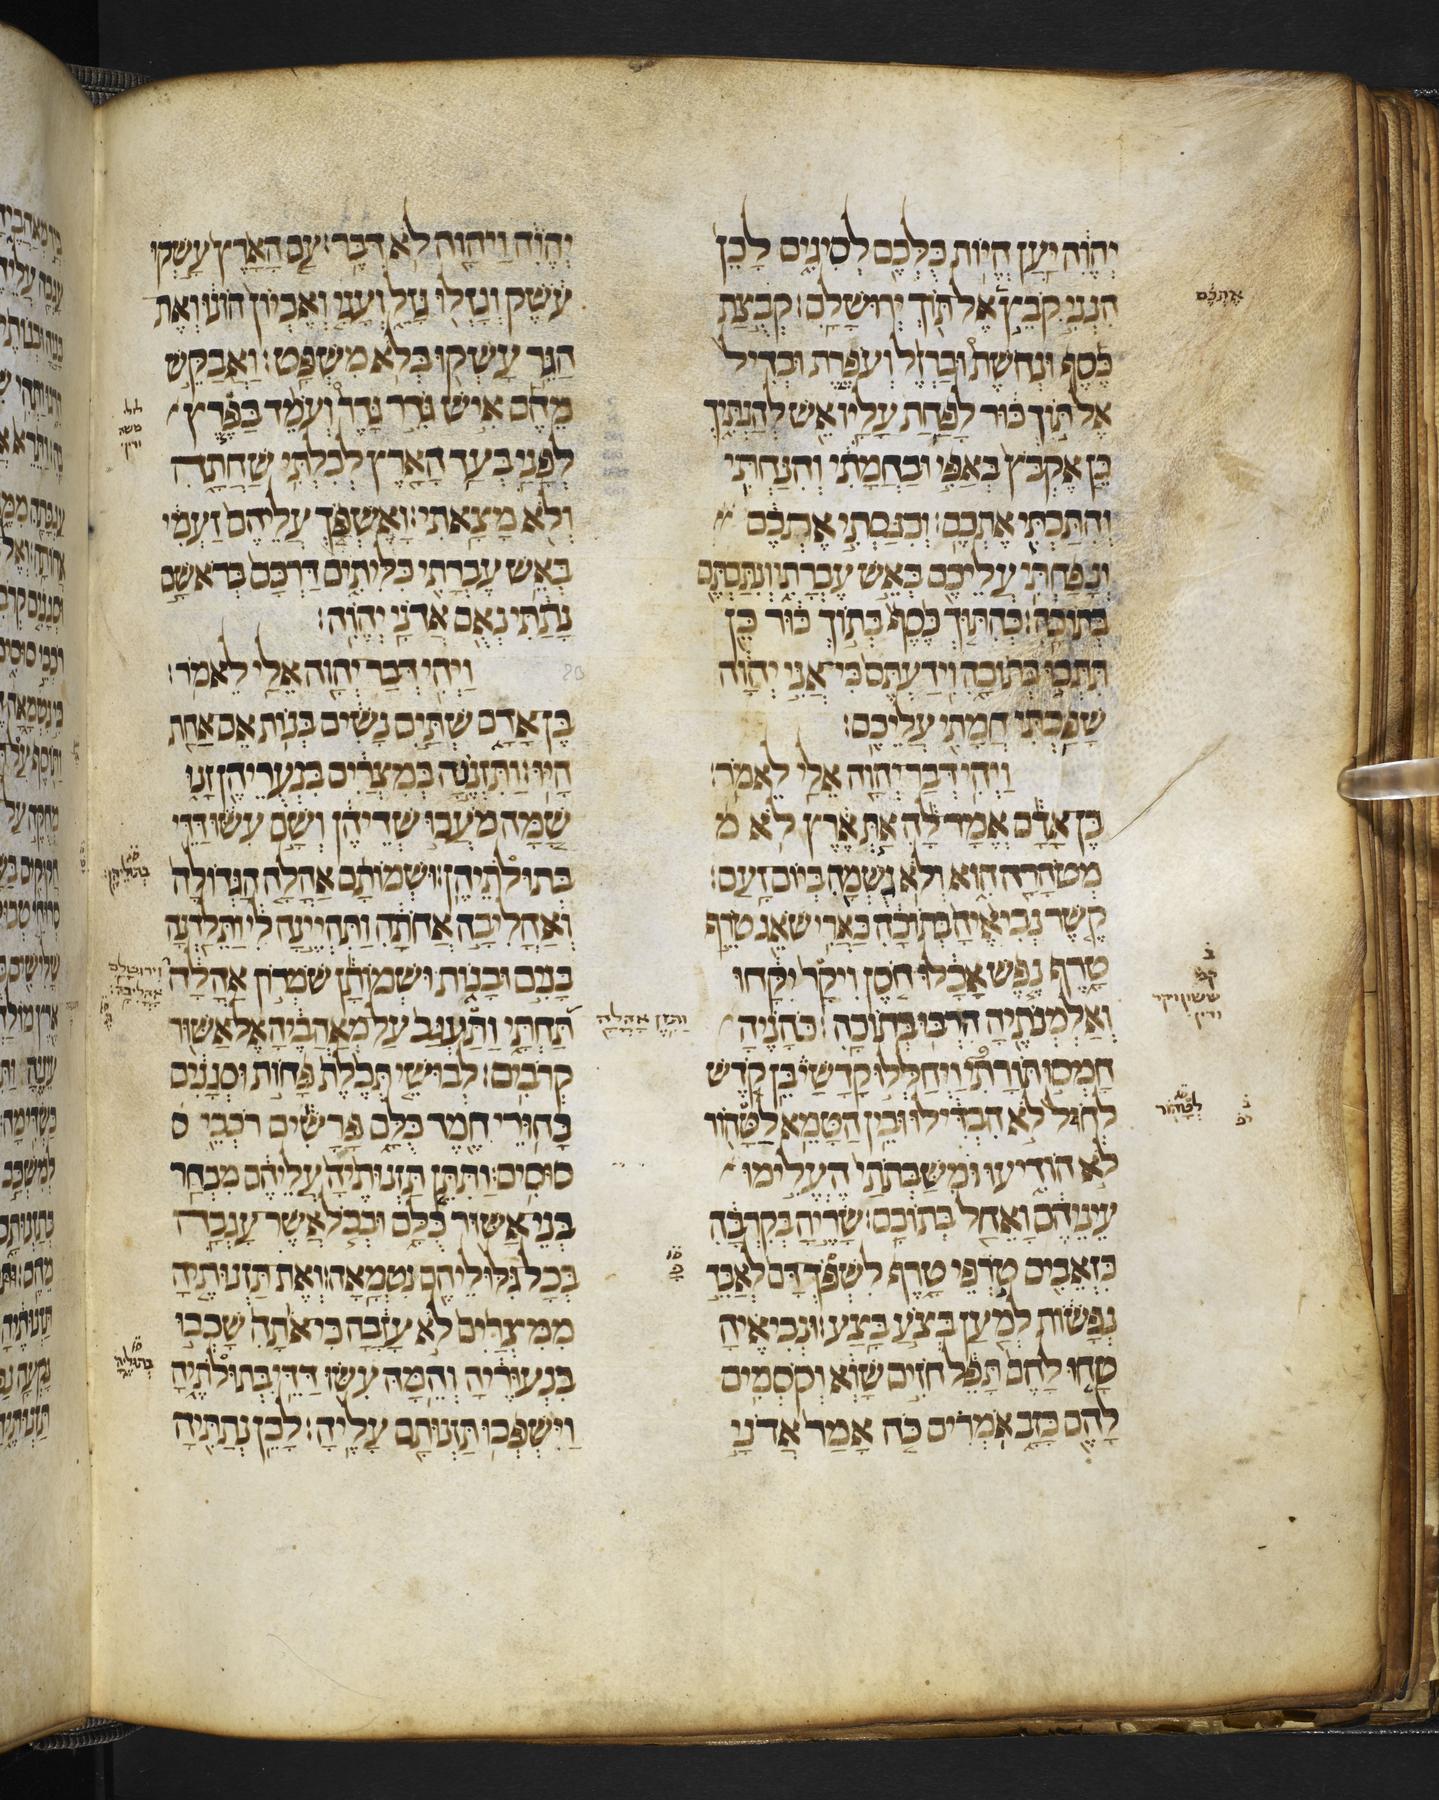 יְהֹוִה יַעַן הֱיוֹת כֻּלְּכֶם לְסִיגִים לָכֵן
הִנְנִי קֹבֵץ אֶל תּוֹךְ יְרוּשָׁלִָם: קְבֻצַת
כֶּסֶף וּנְחֹשֶׁת וּבַרְזֶל וְעֹפֶרֶת וּבְדִיל
אֶל תּוֹךְ כּוּר לָפַחַת עָלָיו אֵשׁ לְהַנְתִּיךְ
כֵּן אֶקְבֹּץ בְּאַפִּי וּבַחֲמָתִי וְהִנַּחְתִּי
וְהִתַּכְתִּי אֶתְכֶם: וְכִנַּסְתִּי אֶתְכֶם
וְנָפַחְתִּי עֲלֵיכֶם בְּאֵשׁ עֶבְרָתִי וְנִתַּכְתֶּם
בְּתוֹכָהּ: כְּהִתּוּךְ כֶּסֶף בְּתוֹךְ כּוּר כֵּן
תֻּתְּכוּ בְתוֹכָהּ וִידַעְתֶּם כִּי אֲנִי יְהוָה
שָׁפַכְתִּי חֲמָתִי עֲלֵיכֶם:
וַיְהִי דְבַר יְהוָה אֵלַי לֵאמֹר:
בֶּן אָדָם אֱמָר לָהּ אַתְּ אֶרֶץ לֹא מ
מְטֹהָרָה הִוא וְלֹא גֻשְׁמָהּ בְּיוֹם זָעַם:
קֶשֶׁר נְבִיאֶיהָ בְּתוֹכָהּ כַּאֲרִי שֹׁאֵג טֹרֵף
טָרֶף נֶפֶשׁ אָכָלוּ חֹסֶן וִיקָר יִקָּחוּ
וְאַלְמְנֹתֶיהָ הִרְבּוּ בְתוֹכָהּ: כֹּהֲנֶיהָ
חָמְסוּ תוֹרָתִי וַיְחַלְּלוּ קָדָשַׁי בֵּין קֹדֶשׁ
לְחֹל לֹא הִבְדִּילוּ וּבֵין הַטָּמֵא לַטָּהוֹר
לֹא הוֹדִיעוּ וּמִשַּׁבְּתֹתַי הֶעְלִימוּ
עֵינֵיהֶם וָאֵחַל בְּתוֹכָם: שָׂרֶיהָ בְקִרְבָּהּ
כִּזְאֵבִים טֹרְפֵי טָרֶף לִשְׁפֹּךְ דָּם לְאַבֵּד
נְפָשׁוֹת לְמַעַן בְּצֹעַ בָּצַע: וּנְבִיאֶיהָ
טָחוּ לָהֶם תָּפֵל חֹזִים שָׁוְא וְקֹסְמִים
לָהֶם כָּזָב אֹמְרִים כֹּה אָמַר אֲדֹנָי
יְהֹוִה וַיהוָה לֹא דִבֵּר: עַם הָאָרֶץ עָשְׁקוּ
עֹשֶׁק וְגָזְלוּ גָּזֵל וְעָנִי וְאֶבְיוֹן הוֹנוּ וְאֶת
הַגֵּר עָשְׁקוּ בְּלֹא מִשְׁפָּט: וָאֲבַקֵּשׁ
מֵהֶם אִישׁ גֹּדֵר גָּדֵר וְעֹמֵד בַּפֶּרֶץ
לְפָנַי בְּעַד הָאָרֶץ לְבִלְתִּי שַׁחֲתָהּ
וְלֹא מָצָאתִי: וָאֶשְׁפֹּךְ עֲלֵיהֶם זַעְמִי
בְּאֵשׁ עֶבְרָתִי כִּלִּיתִים דַּרְכָּם בְּרֹאשָׁם
נָתַתִּי נְאֻם אֲדֹנָי יְהֹוִה:
וַיְהִי דְבַר יְהוָה אֵלַי לֵאמֹר:
בֶּן אָדָם שְׁתַּיִם נָשִׁים בְּנוֹת אֵם אַחַת
הָיוּ: וַתִּזְנֶינָה בְמִצְרַיִם בִּנְעוּרֵיהֶן זָנוּ
שָׁמָּה מֹעֲכוּ שְׁדֵיהֶן וְשָׁם עִשּׂוּ דַּדֵּי
בְּתוּלֵיהֶן: וּשְׁמוֹתָם אָהֳלָה הַגְּדוֹלָה
וְאָהֳלִיבָה אֲחוֹתָהּ וַתִּהְיֶינָה לִי וַתֵּלַדְנָה
בָּנִים וּבָנוֹת וּשְׁמוֹתָן שֹׁמְרוֹן אָהֳלָה
תַּחְתָּי וַתַּעְגַּב עַל מְאַהֲבֶיהָ אֶל אַשּׁוּר
קְרוֹבִים: לְבוּשֵׁי תְכֵלֶת פַּחוֹת וּסְגָנִים
בַּחוּרֵי חֶמֶד כֻּלָּם פָּרָשִׁים רֹכְבֵי ס
סוּסִים: וַתִּתֵּן תַּזְנוּתֶיהָ עֲלֵיהֶם מִבְחַר
בְּנֵי אַשּׁוּר כֻּלָּם וּבְכֹל אֲשֶׁר עָגְבָה
בְּכָל גִּלּוּלֵיהֶם נִטְמָאָה: וְאֶת תַּזְנוּתֶיהָ
מִמִּצְרַיִם לֹא עָזָבָה כִּי אֹתָהּ שָׁכְבוּ
בִנְעוּרֶיהָ וְהֵמָּה עִשּׂוּ דַּדֵּי בְתוּלֶיהָ
וַיִּשְׁפְּכוּ תַזְנוּתָם עָלֶיהָ: לָכֵן נְתַתִּיהָ
אֶתְכֶם
וַתִּזֶן אָהֳלָה
וִירוּשָׁלִַם
אָהֳלִיבָה: